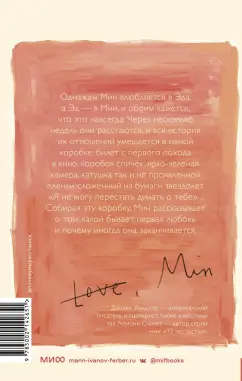 Однажды Мин влюбляется в Эда,
а Эд — в Мин, и обоим кажется,
что это навсегда. Через несколько
недель они расстаются, и вся история
их отношений умещается в одной
коробке: билет с первого похода
в кино, коробок спичек, ярко-зеленая
камера, катушка так и не проявленной
пленки, сложенный из бумаги звездолет...
«Я не могу перестать думать о тебе».
Собирая эту коробку, Мин рассказывает
о том, какой бывает первая любовь
и почему иногда она заканчивается.
Love, Min
Дэниел Хендлер — американский
писатель и сценарист, также известный
как Лемони Сникет — автор серии
МИФ
mann-ivanov-ferber.ru
@mifbooks